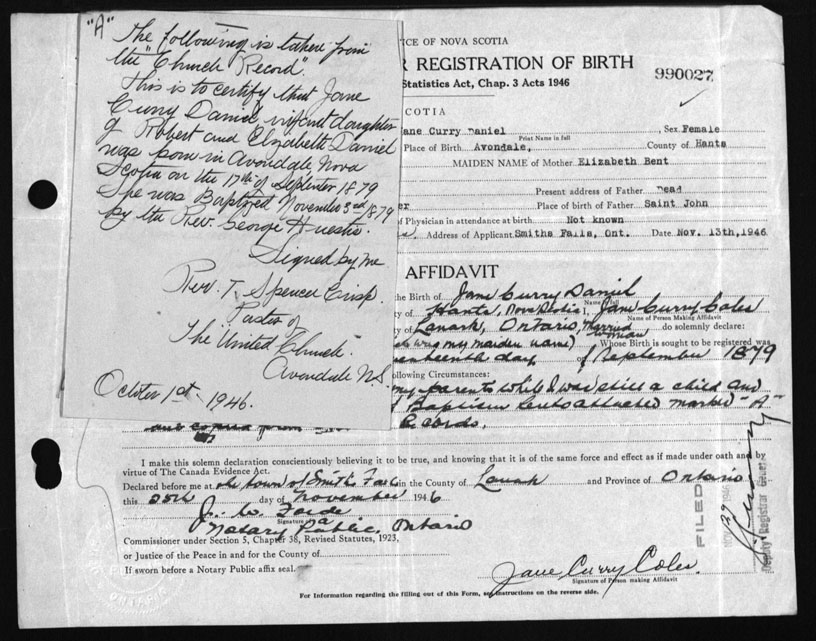 "A"
The following is taken from
the "Church Record".
This is to certify that Jane
Curry Daniel infant daughter
of Robert and Elizabeth Daniel
was born in Avondale Nova
Scotia on the 17th of September 1879
She was Baptized November 3rd 1879
by the Rev. George Huestis.
Signed by me
Rev. T. Spencer Crisp.
Pastor of
The "United Church"
Avondale N.S.
October 1st 1946.
ICE OF NOVA SCOTIA
R REGISTRATION OF BIRTH
Statistics Act, Chap. 3 Acts 1946
990027
COTIA
ane Curry Daniel, Sex Female
Print Name in full
Place of Birth Avondale, County of Hants
MAIDEN NAME of Mother Elizabeth Bent
Present address of Father Dead
er Place of birth of Father Saint John
of Physician in attendance at birth Not known
Address of Applicant Smiths Falls, Ont. Date Nov. 13th, 1946
AFFIDAVIT
the Birth of Jane Curry Daniel
Name in full
y of Hants, Nova Scotia I, Jane Curry Coles
Name of Person Making Affidavit
y of Lanark, Ontario, Married Woman do solemnly declare:
my maiden name) Whose Birth is sought to be registered was
enteenth day of September 1879
following Circumstances:
my parents while I was still a child and
Baptism attached marked "A"
and copied from Records.
I make this solemn declaration conscientiously believing it to be true, and knowing that it is of the same force and effect as if made under oath and by
virtue of The Canada Evidence Act.
Declared before me at the town of Smiths Falls in the County of Lanark and Province of Ontario
this 25th day of November 1946
Signature
Notary Public, Ontario
Commissioner under Section 5, Chapter 38, Revised Statutes, 1923,
or Justice of the Peace in and for the County of
If sworn before a Notary Public affix seal.
Jane Curry Coles
Signature of Person making Affidavit
For Information regarding the filling out of this Form, see instructions on the reverse side.
FILED
Deputy Registrar General